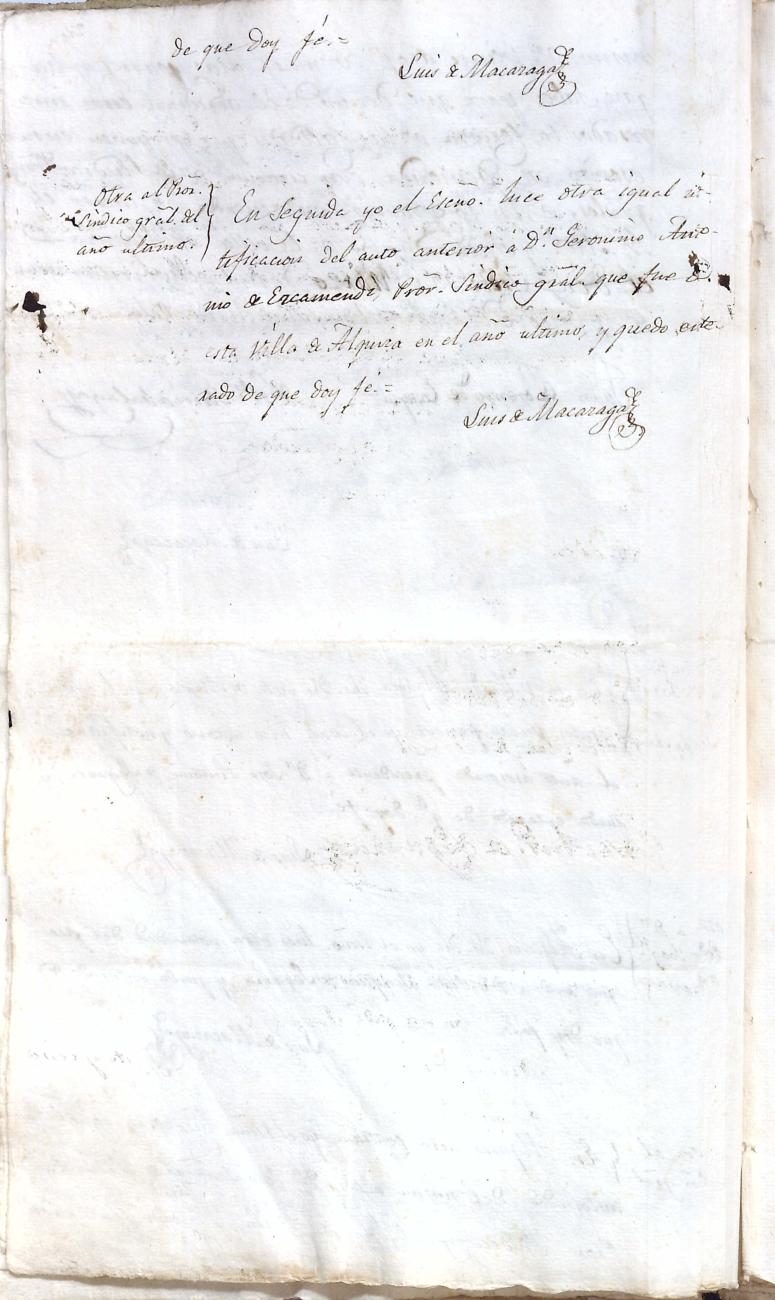 de que doy fé.=
Luis de Macaraga
Otra al Pror.
Síndico gral. del
año ultimo.
En seguida yo el Escño. hice otra igual no-
tificacion del auto anterior á Dn. Geronimo Anto-
nio de Ezcamendi, Pror. Síndico gral. que fue de
esta Villa de Alquiza en el año ultimo, y quedo ente-
rado de que doy fé.=
Luis de Macaraga